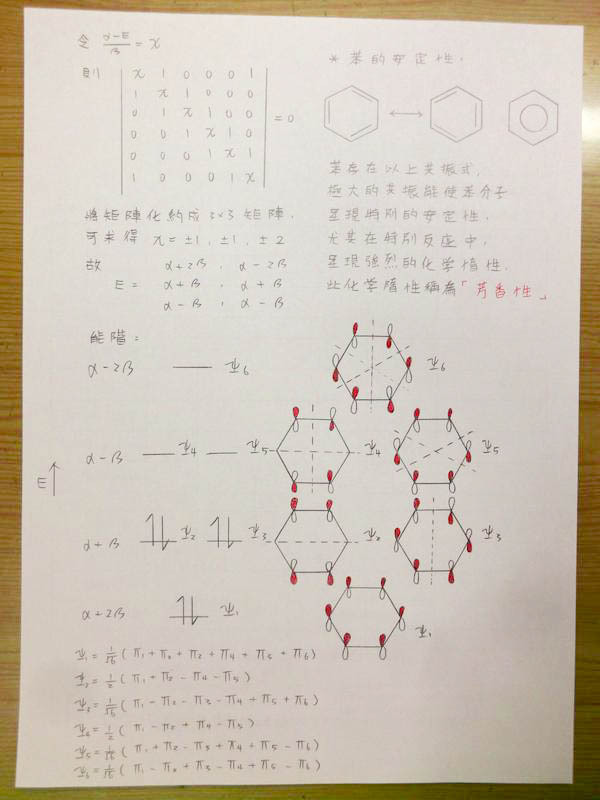 令 (α-E)/β = x
則
x 1 0 0 0 1
1 x 1 0 0 0
0 1 x 1 0 0
0 0 1 x 1 0
0 0 0 1 x 1
1 0 0 0 1 x
= 0
將矩陣化約成 3×3 矩陣,
可求得 x = ±1, ±1, ±2
故 α+2β , α-2β
E = α+β , α+β
α-β , α-β
* 苯的安定性,
苯存在以上共振式,
極大的共振能使苯分子
呈現特別的安定性,
尤其在特別反應中,
呈現強烈的化學惰性,
此化學惰性稱為「芳香性」
能階:
α-2β Ψ6 Ψ6
E α-β Ψ4 Ψ5 Ψ4 Ψ5
α+β Ψ2 Ψ3 Ψ2 Ψ3
α+2β Ψ1 Ψ1
Ψ1 = 1/√6 ( π1 + π2 + π2 + π4 + π5 + π6 )
Ψ2 = 1/2 ( π1 + π2 - π4 - π5 )
Ψ3 = 1/√6 ( π1 - π2 - π3 - π4 + π5 + π6 )
Ψ4 = 1/2 ( π1 - π2 + π4 - π5 )
Ψ5 = 1/√6 ( π1 + π2 - π3 + π4 + π5 - π6 )
Ψ6 = 1/√6 ( π1 - π2 + π3 - π4 + π5 - π6 )